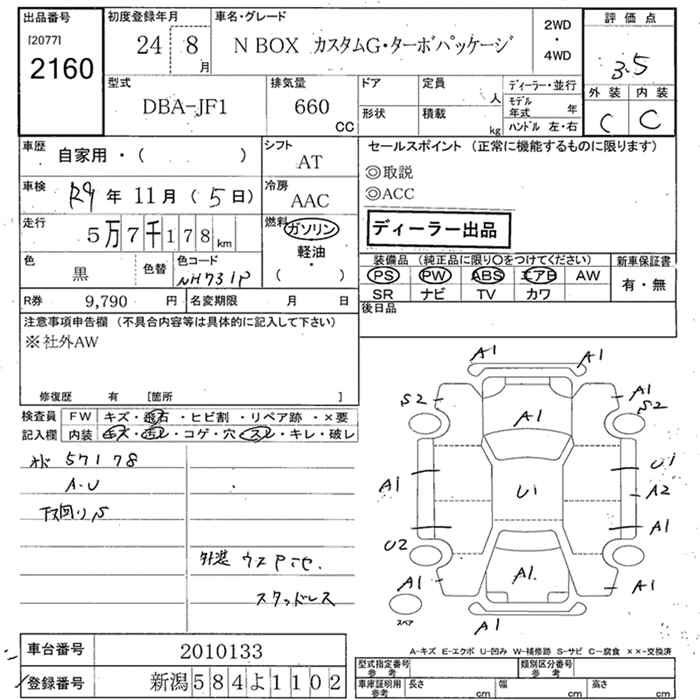 出品番号 初度登録年月 車名・グレード 2WD 評価点
[2077] 24 8 月 N BOX カスタムG・ターボパッケージ ・ 3.5
2160 4WD
型式 排気量 ドア 定員 人 ディーラー・並行 外装 内装
DBA-JF1 660 CC 形状 積載 kg モデル年式 年 C C
ハンドル 左・右
車歴 自家用・( ) シフト AT セールスポイント (正常に機能するものに限ります)
◎取説
車検 R4 年 11 月 ( 5 日) 冷房 AAC ◎ACC
走行 5万7千178 km 燃料 ガソリン ・ 軽油 ・ ( ) ディーラー出品
色 黒 色替 色コード NH731P 装備品 (純正品に限り○をつけてください) 新車保証書
PS PW ABS エアB AW 有・無
R券 9,790 円 名変期限 月 日 SR ナビ TV カワ
注意事項申告欄 (不具合内容等は具体的に記入して下さい) 後日品
※社外AW
修復歴 有 [箇所 ]
検査員 FW キズ・飛石・ヒビ割・リペア跡・×要
記入欄 内装 キズ・汚レ・コゲ・穴・スレ・キレ・破レ
57178
A・U
下回りS
外装
スタッドレス
A1 A1
S2 A1 A1 S2
A1 U1 U1 A2
A1
U2
A1 A1 A1
スペア A1
A-キズ E-エクボ U-凹み W-補修跡 S-サビ C-腐食 ××-交換済
車台番号 2010133 型式指定番号 参考 類別区分番号 参考
登録番号 新潟584よ1102 車庫証明用 参考 長さ cm 幅 cm 高さ cm